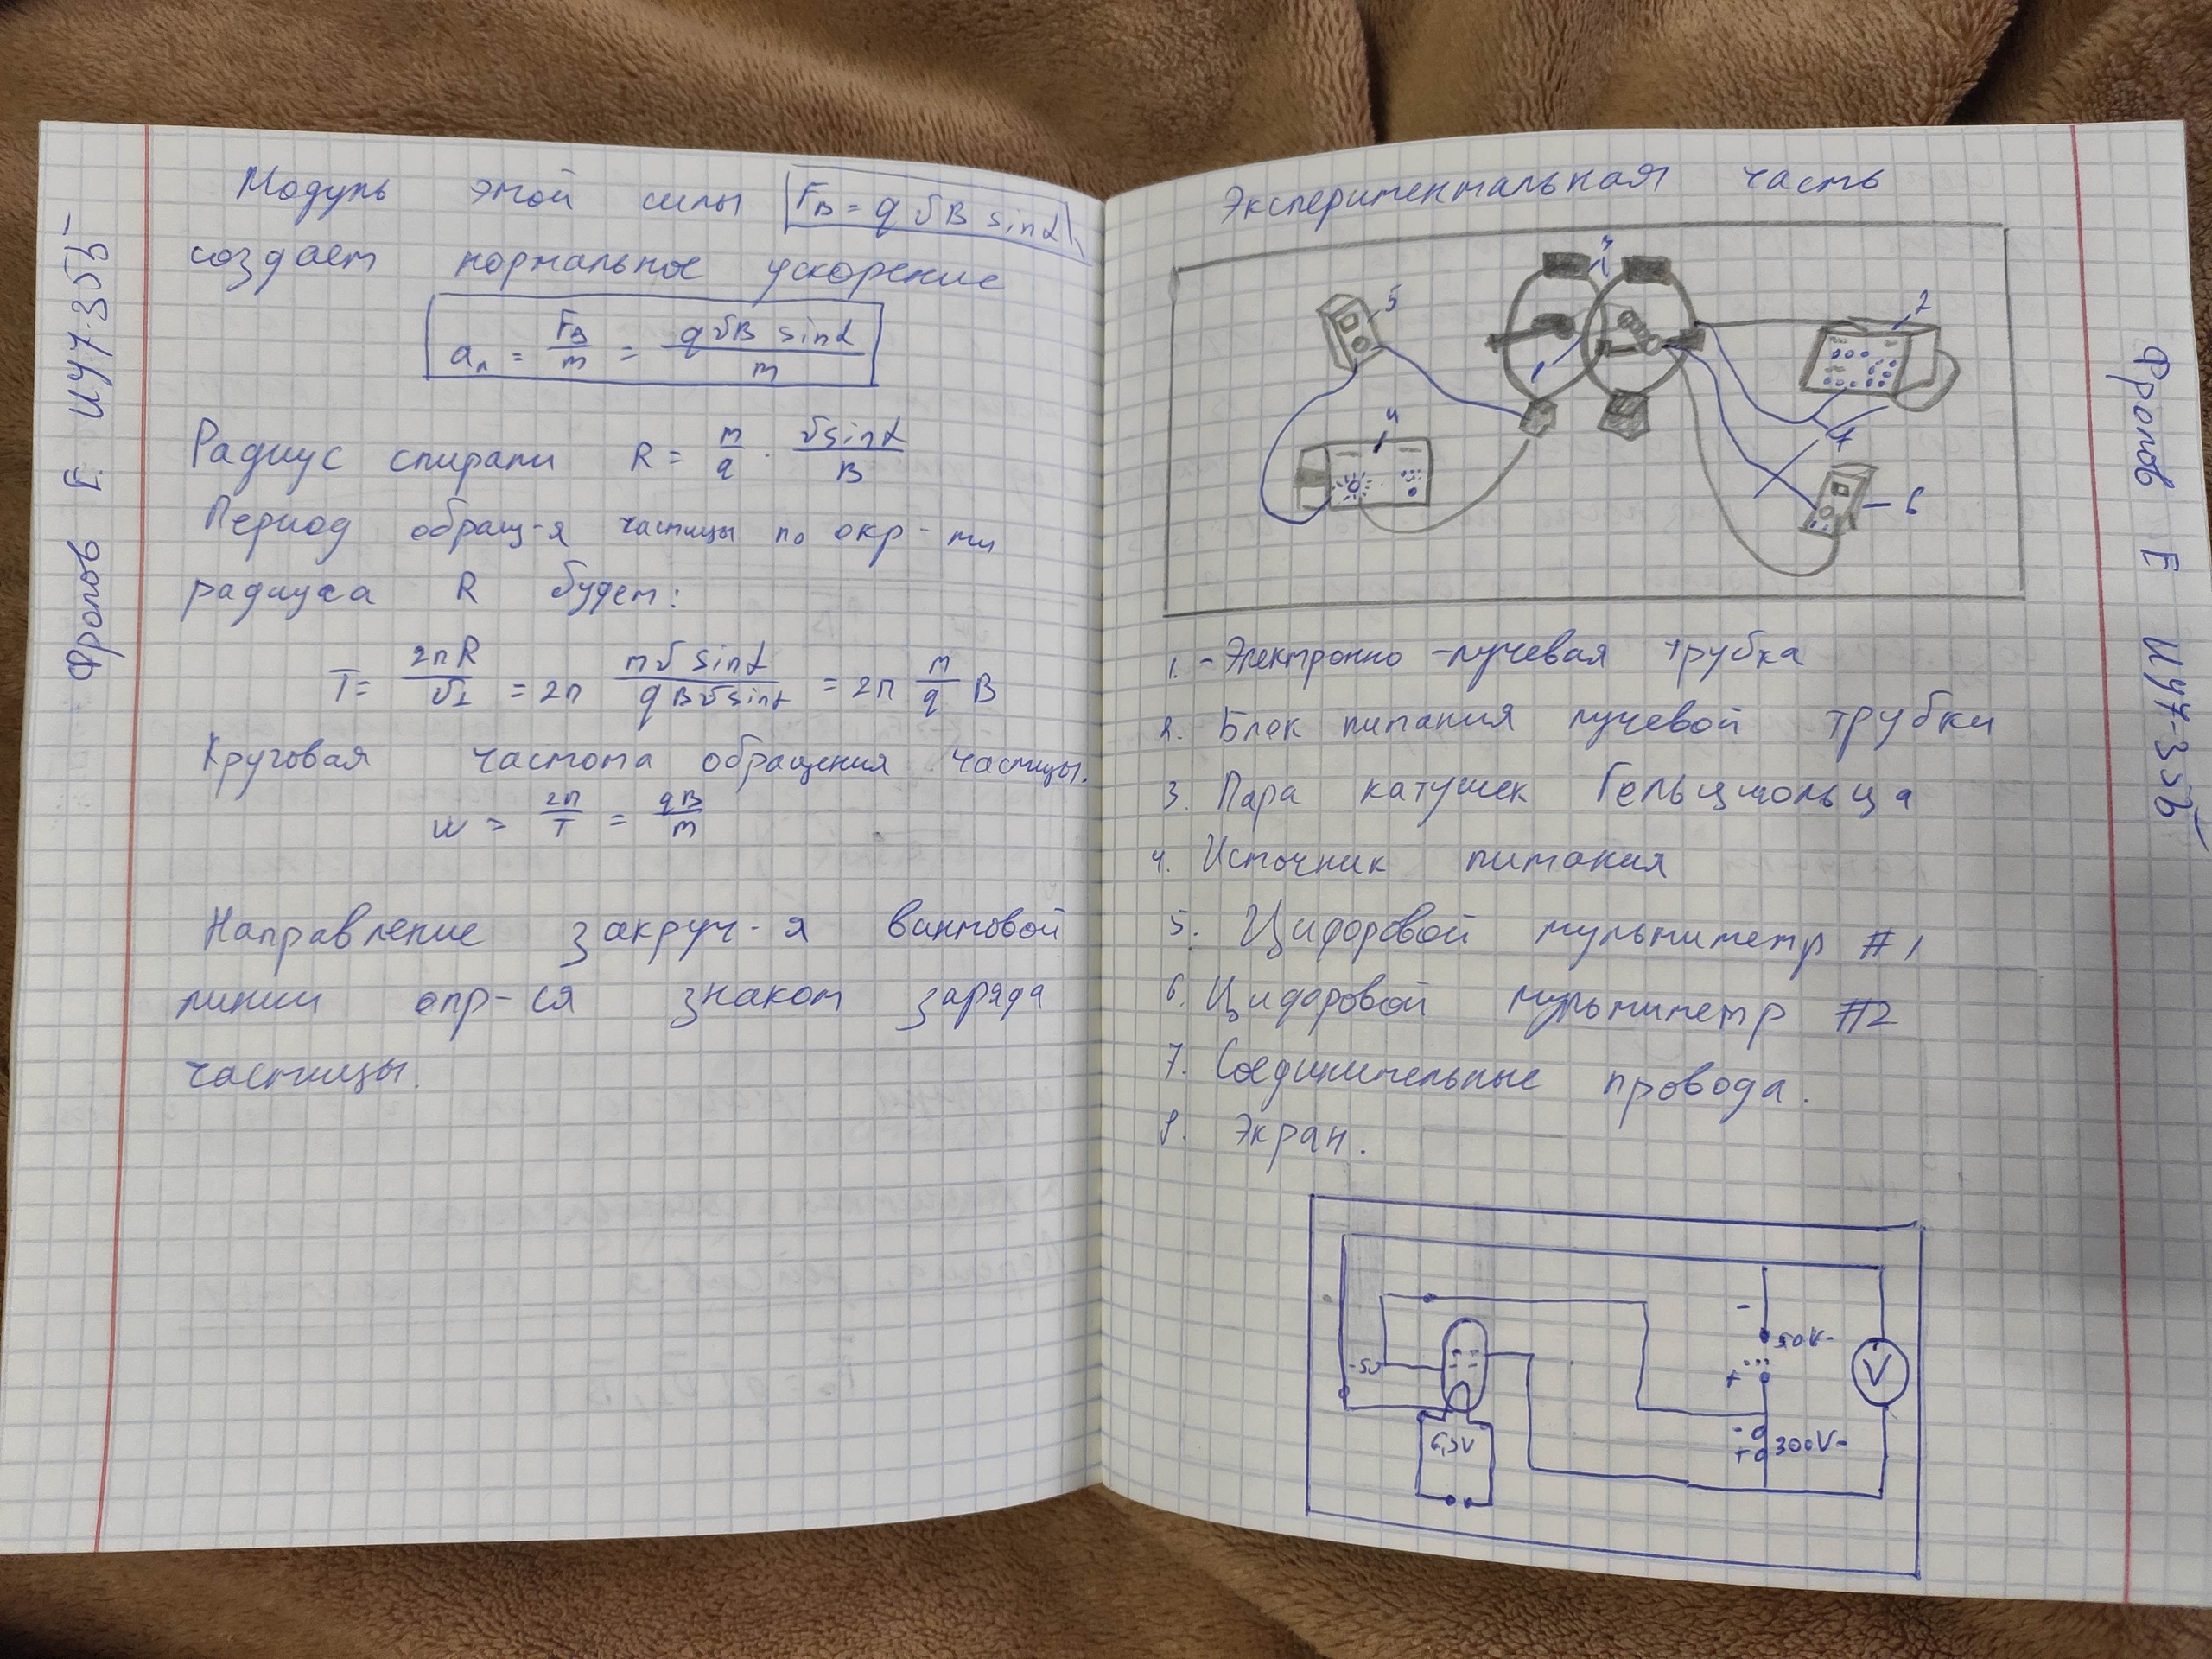 Фролов Е. ИУ7-35Б
Модуль этой силы F_B = q υ B sin α,
создает нормальное ускорение
a_n = F_B / m = q υ B sin α / m
Радиус спирали R = m/q · υ sin α / B
Период обращ-я частицы по окр-ти
радиуса R будет:
T = 2πR / υ⊥ = 2π mυ sin α / qBυ sin α = 2π m/q B
Круговая частота обращения частицы.
ω = 2π/T = qB/m
Направление закруч-я винтовой
линии опр-ся знаком заряда
частицы.
Экспериментальная часть
3
5
2
1
4
7
6
1. - Электронно-лучевая трубка
2. Блок питания лучевой трубки
3. Пара катушек Гельцмольца
4. Источник питания
5. Цифоровой мультиметр #1
6. Цифоровой мультиметр #2
7. Соединительные провода.
8. Экран.
-
50V-
-50
+
V
6,3V
-
+
300V-
Фролов Е ИУ7-35Б